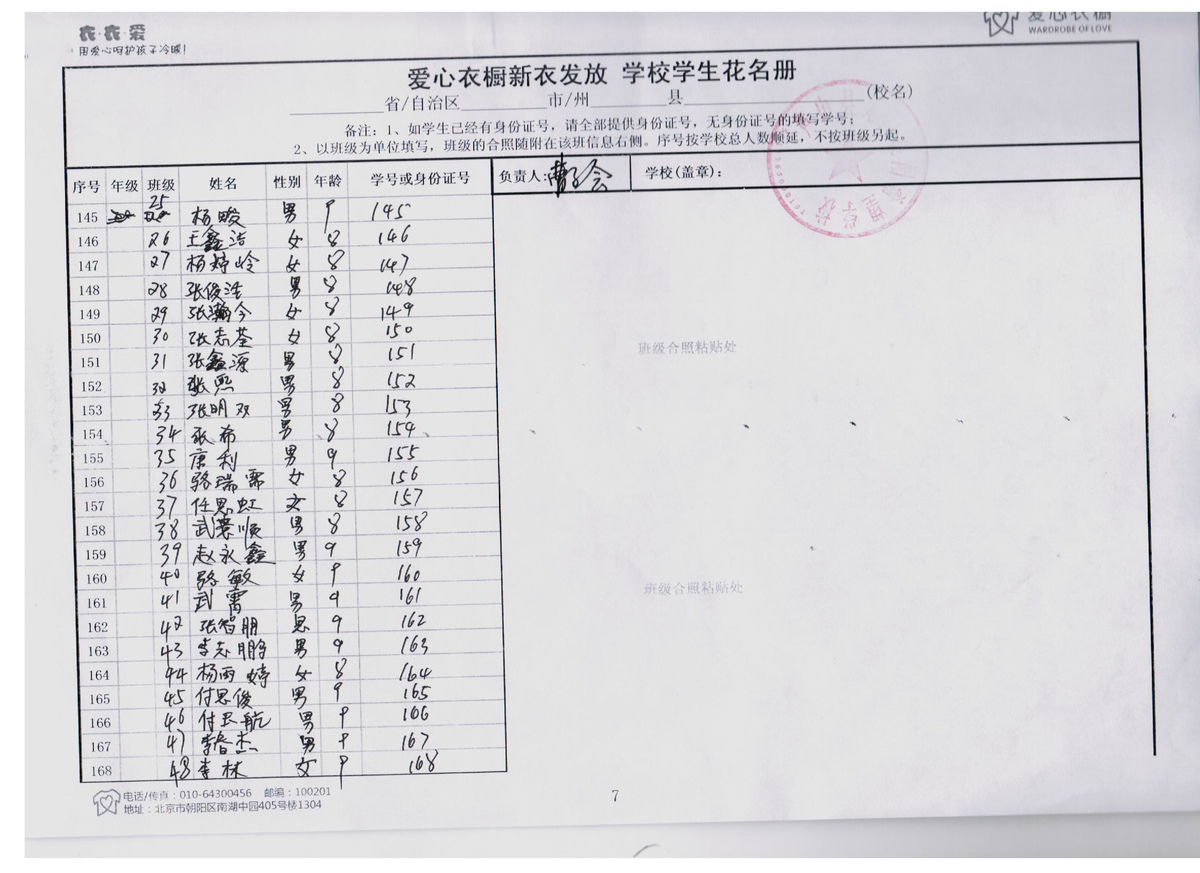 衣·衣·爱
用爱心呵护孩子冷暖!
爱心衣橱
WARDROBE OF LOVE
爱心衣橱新衣发放 学校学生花名册
省/自治区 市/州 县 (校名)
备注：1、如学生已经有身份证号，请全部提供身份证号，无身份证号的填写学号；
2、以班级为单位填写，班级的合照随附在该班信息右侧。序号按学校总人数顺延，不按班级另起。
序号 年级 班级 姓名 性别 年龄 学号或身份证号 负责人: 学校(盖章):
145 25 杨晙 男 9 145
146 26 王鑫浩 女 8 146
147 27 杨婷岭 女 8 147
148 28 张俊浩 男 8 148
149 29 张瀚今 女 8 149
150 30 张志荃 女 8 150
151 31 张鑫源 男 8 151
152 32 张熙 男 8 152
153 33 张明双 男 8 153
154 34 张希 男 8 154
155 35 唐利 男 9 155
156 36 骆瑞霈 女 8 156
157 37 任思虹 女 8 157
158 38 武荣顺 男 8 158
159 39 赵永鑫 男 9 159
160 40 骆敏 女 9 160
161 41 武雷 男 9 161
162 42 张智朋 男 9 162
163 43 李志鹏 男 9 163
164 44 杨雨婷 女 8 164
165 45 付思俊 男 9 165
166 46 付天航 男 9 166
167 47 李春杰 男 9 167
168 48 李林 女 9 168
班级合照粘贴处
班级合照粘贴处
电话/传真：010-64300456 邮编：100201
地址：北京市朝阳区南湖中园405号楼1304
7